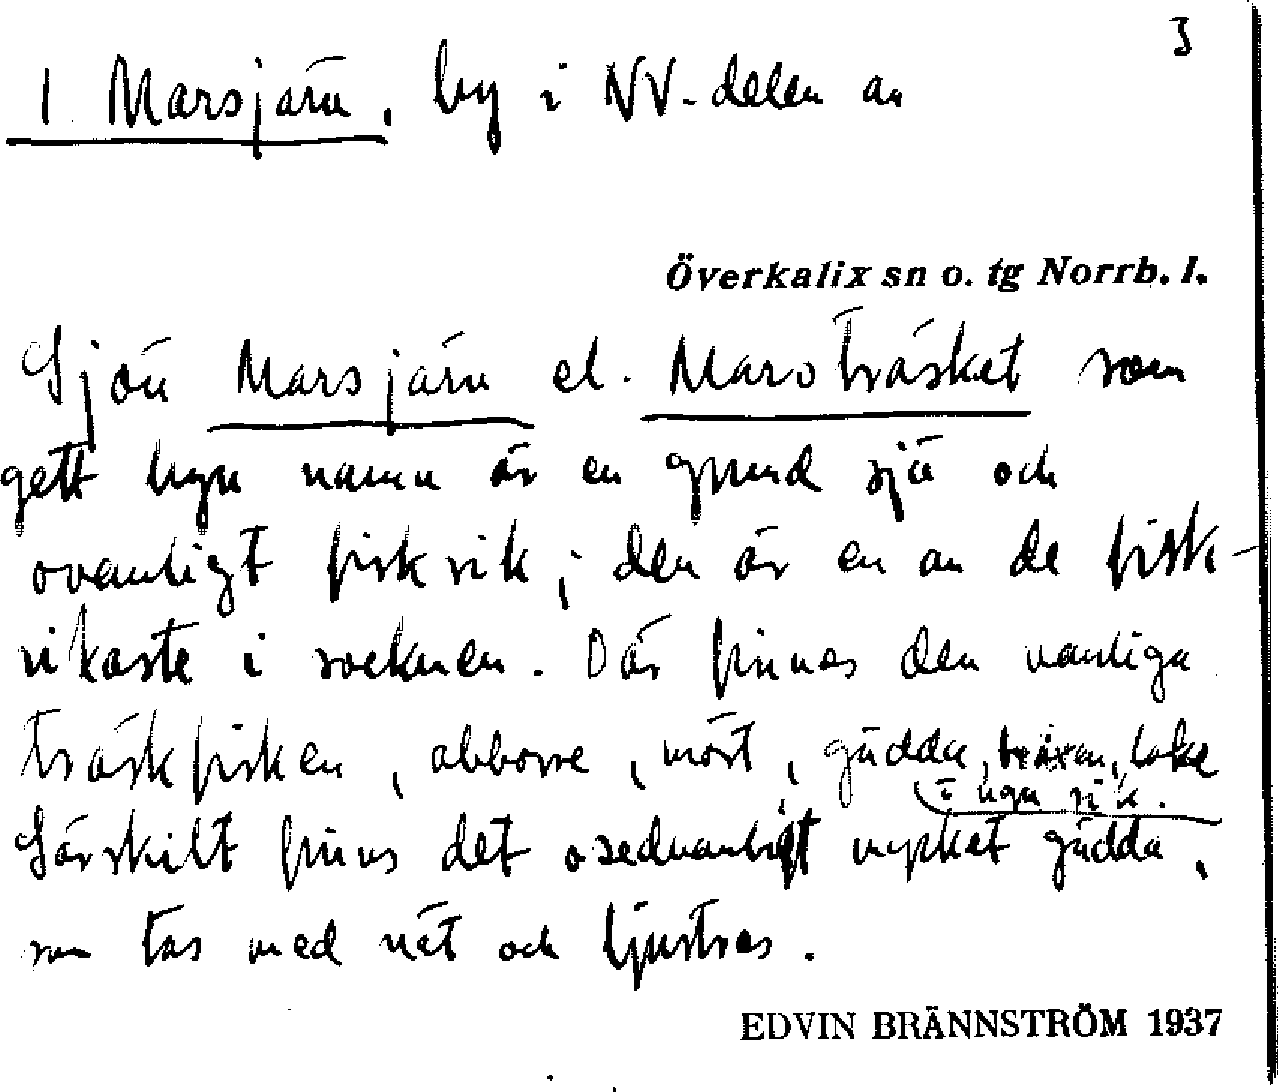 3
1 Marsjärv, by i NV-delen av
Överkalix sn o. tg Norrb. l.
Sjön Marsjärv el. Marsträsket som
gett byn namn är en grund sjö och
ovanligt fiskrik; den är en av de fisk-
rikaste i socknen. Där finnes den vanliga
träskfisken, abborre, mört, gädda, braxen, lake
i nga sik.
Särskilt finns det osedvanligt mycket gädda,
som tas med nät och ljustras.
EDVIN BRÄNNSTRÖM 1937